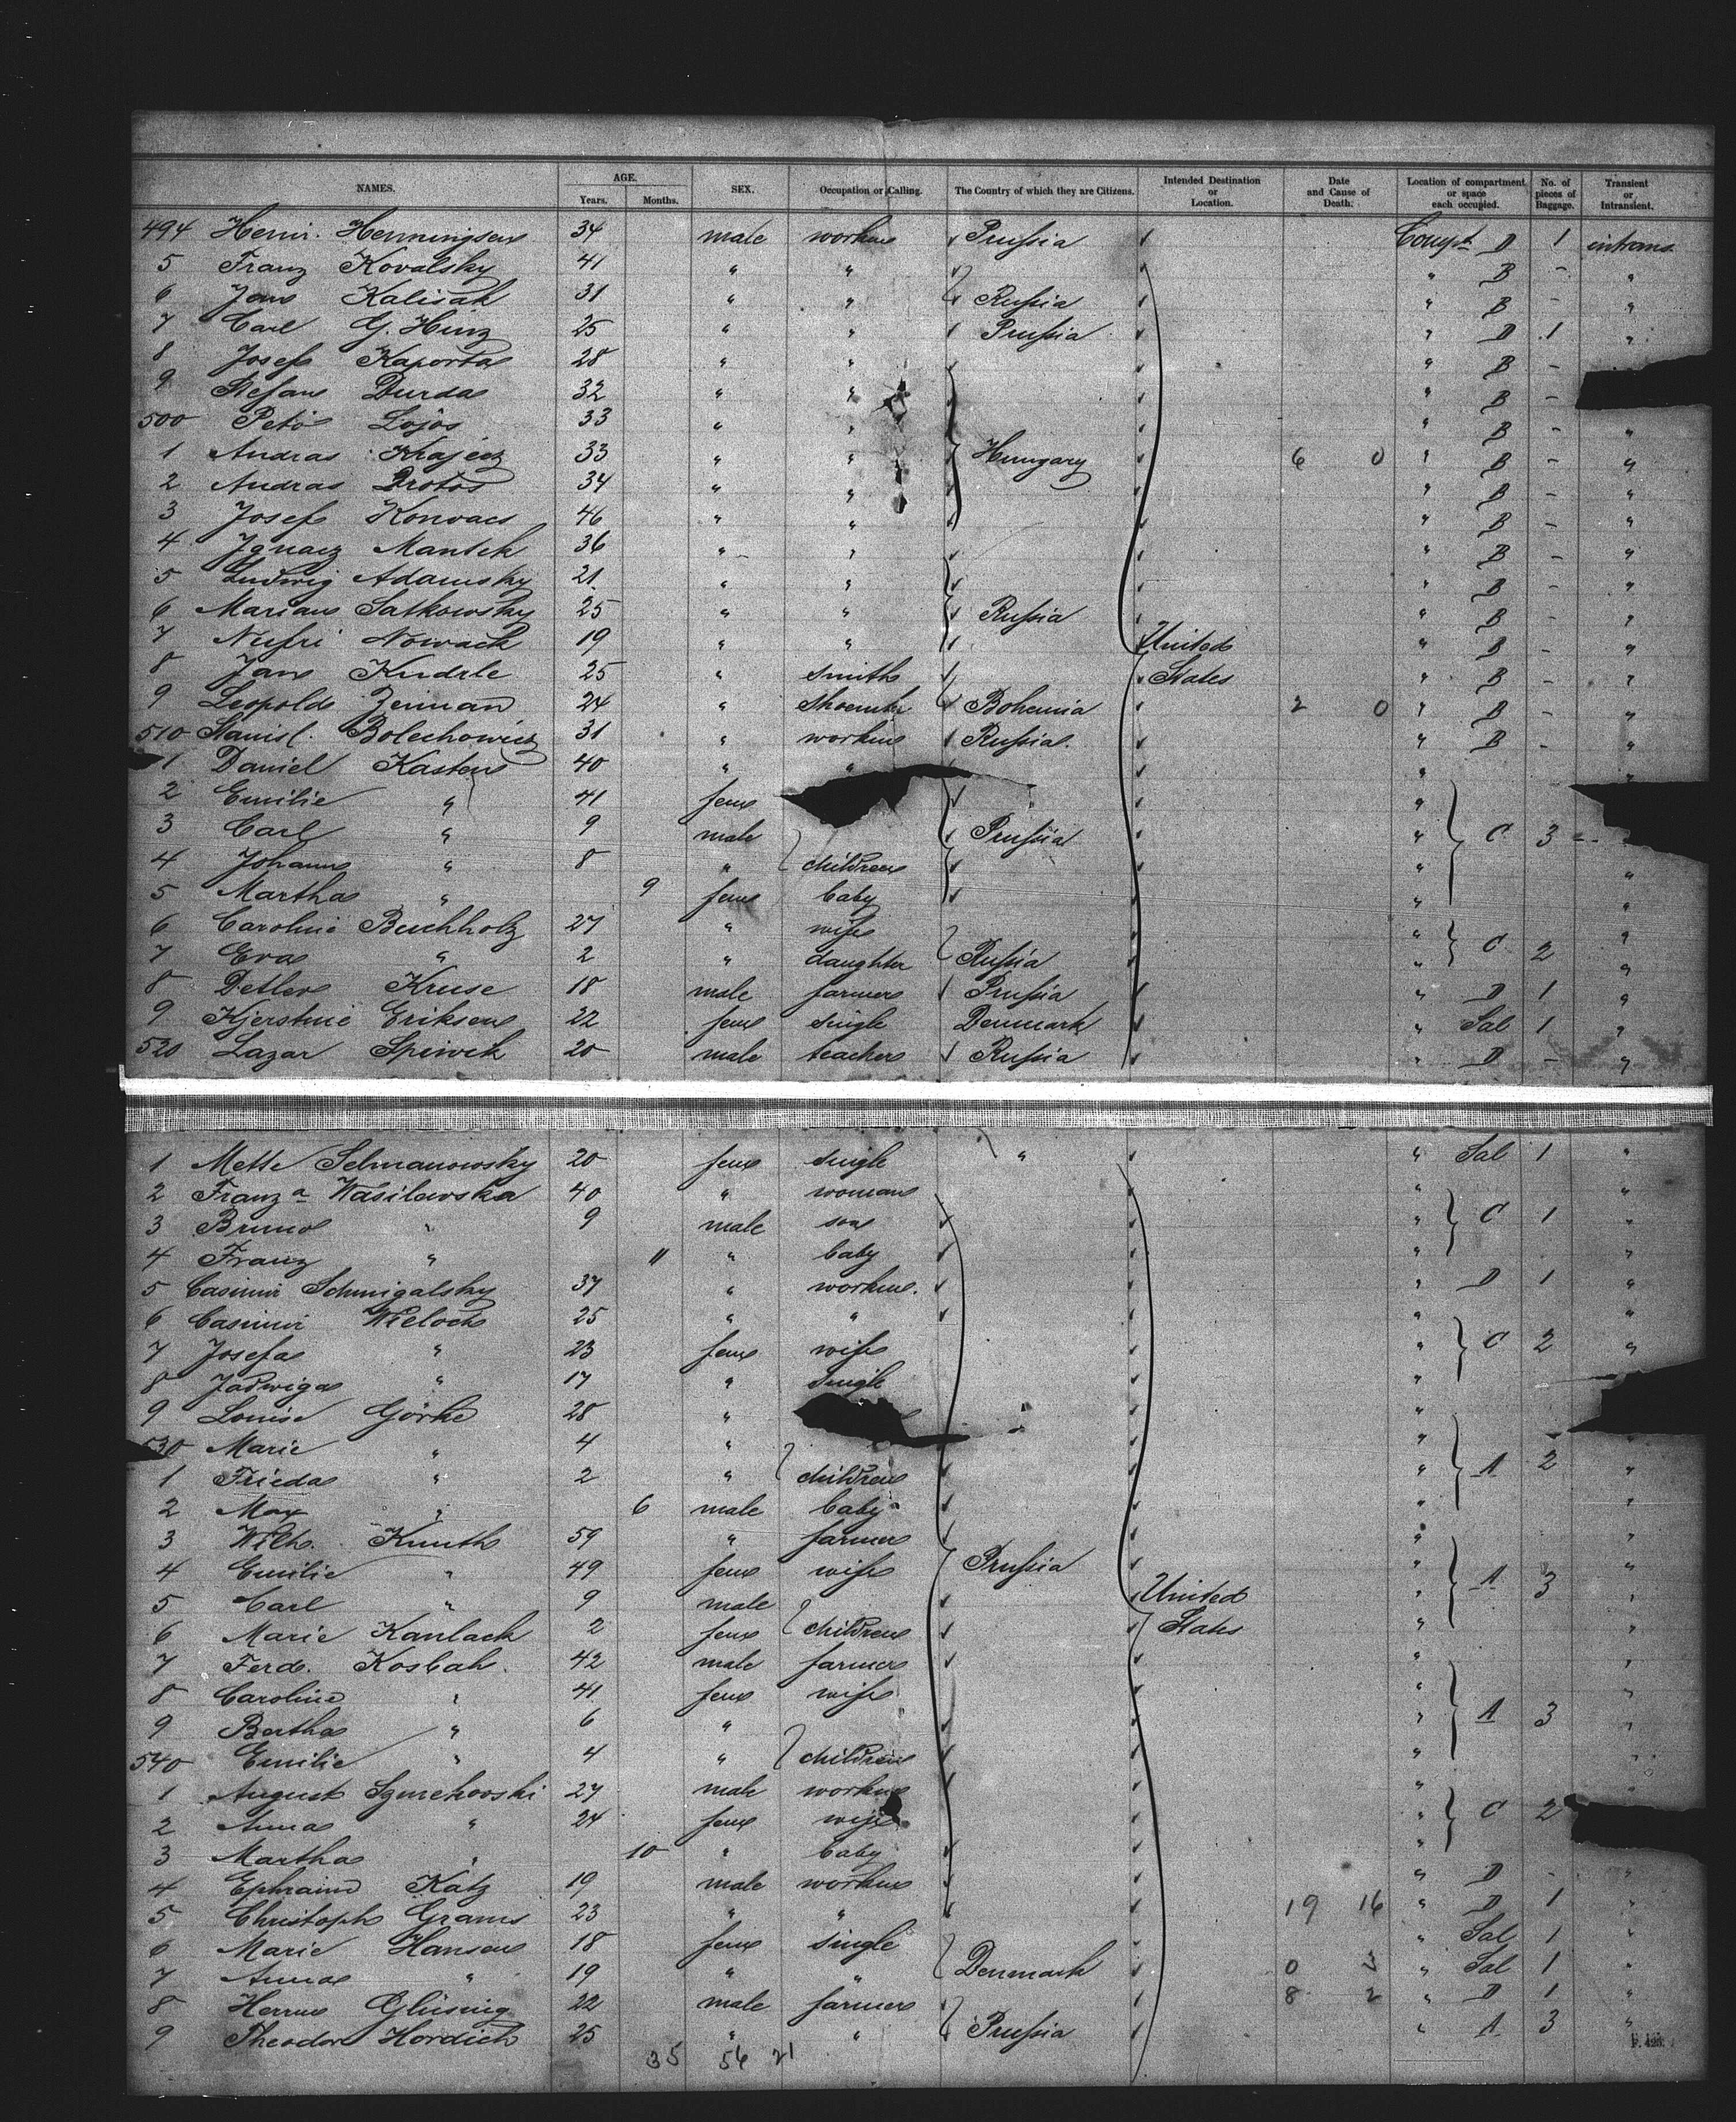 NAMES. AGE. Years. Months. SEX. Occupation or Calling. The Country of which they are Citizens. Intended Destination or Location. Date and Cause of Death. Location of compartment or space each occupied. No. of pieces of Baggage. Transient or Intransient.
494 Henn. Henningsen 34 male workm Prussia Compt D 1 intrans
5 Franz Kovalsky 41 " " " B - "
6 Jan Kalisak 31 " " Russia " B - "
7 Carl G. Hinz 25 " " Prussia " D 1 "
8 Josef Kaporta 28 " " " B -
9 Stefan Durda 32 " " " B -
500 Petö Lojos 33 " " " B - "
1 Andras Krajecz 33 " " Hungary 6 0 " B - "
2 Andras Protos 34 " " " B - "
3 Josef Konvacs 46 " " " B - "
4 Ignacz Mantek 36 " " " B - "
5 Ludwig Adamsky 21 " " " B - "
6 Marian Satkowsky 25 " " Russia " B - "
7 Nufri Nowack 19 " " United " B - "
8 Jan Kudrle 25 " smith States " B - "
9 Leopold Zeiman 24 " shoemkr Bohemia 2 0 " B - "
510 Stanisl. Bolechowicz 31 " workm Russia. " B - "
1 Daniel Kasten 40 " " " "
2 Emilie " 41 fem "
3 Carl " 9 male Prussia " C 3 "
4 Johann " 8 " children " "
5 Martha " 9 fem baby " "
6 Caroline Buchholz 27 " wife " "
7 Eva " 2 " daughter Russia " C 2 "
8 Detlev Kruse 18 male farmer Prussia " D 1 "
9 Kjerstine Eriksen 22 fem single Denmark " Sal 1 "
520 Lazar Spiwek 20 male teacher Russia " D - "
1 Mette Selmanowsky 20 fem single " " Sal 1 "
2 Franz a Wasilawska 40 " woman " "
3 Bruno " 9 male son " C 1 "
4 Franz " 11 " baby " "
5 Casimir Schmigalsky 37 " workm. " D 1 "
6 Casimir Wieloch 25 " " " "
7 Josefa " 23 fem wife " C 2 "
8 Jadwiga " 17 " single "
9 Louise Görke 28 " "
530 Marie " 4 " " "
1 Frieda " 2 " children " A 2 "
2 Max " 6 male baby " "
3 Wilh. Knuth 59 " farmer " "
4 Emilie " 49 fem wife Prussia " "
5 Carl " 9 male United " A 3 "
6 Marie Kanlack 2 fem children States " "
7 Ferd. Kosbah. 42 male farmer " "
8 Caroline " 41 fem wife " "
9 Bertha " 6 " " A 3 "
540 Emilie " 4 " children " "
1 August Szmehovski 27 male workm " "
2 Anna " 24 fem wife " C 2
3 Martha " 10 " baby "
4 Ephraim Katz 19 male workm " D - "
5 Christoph Grams 23 " " 19 16 " D 1 "
6 Marie Hansen 18 fem single " Sal 1 "
7 Anna " 19 " " Denmark 0 3 " Sal 1 "
8 Herm Glüsing 22 male farmer 8 2 " D 1 "
9 Theodor Hordich 25 " " Prussia " A 3 "
35 56 21
F. 423.